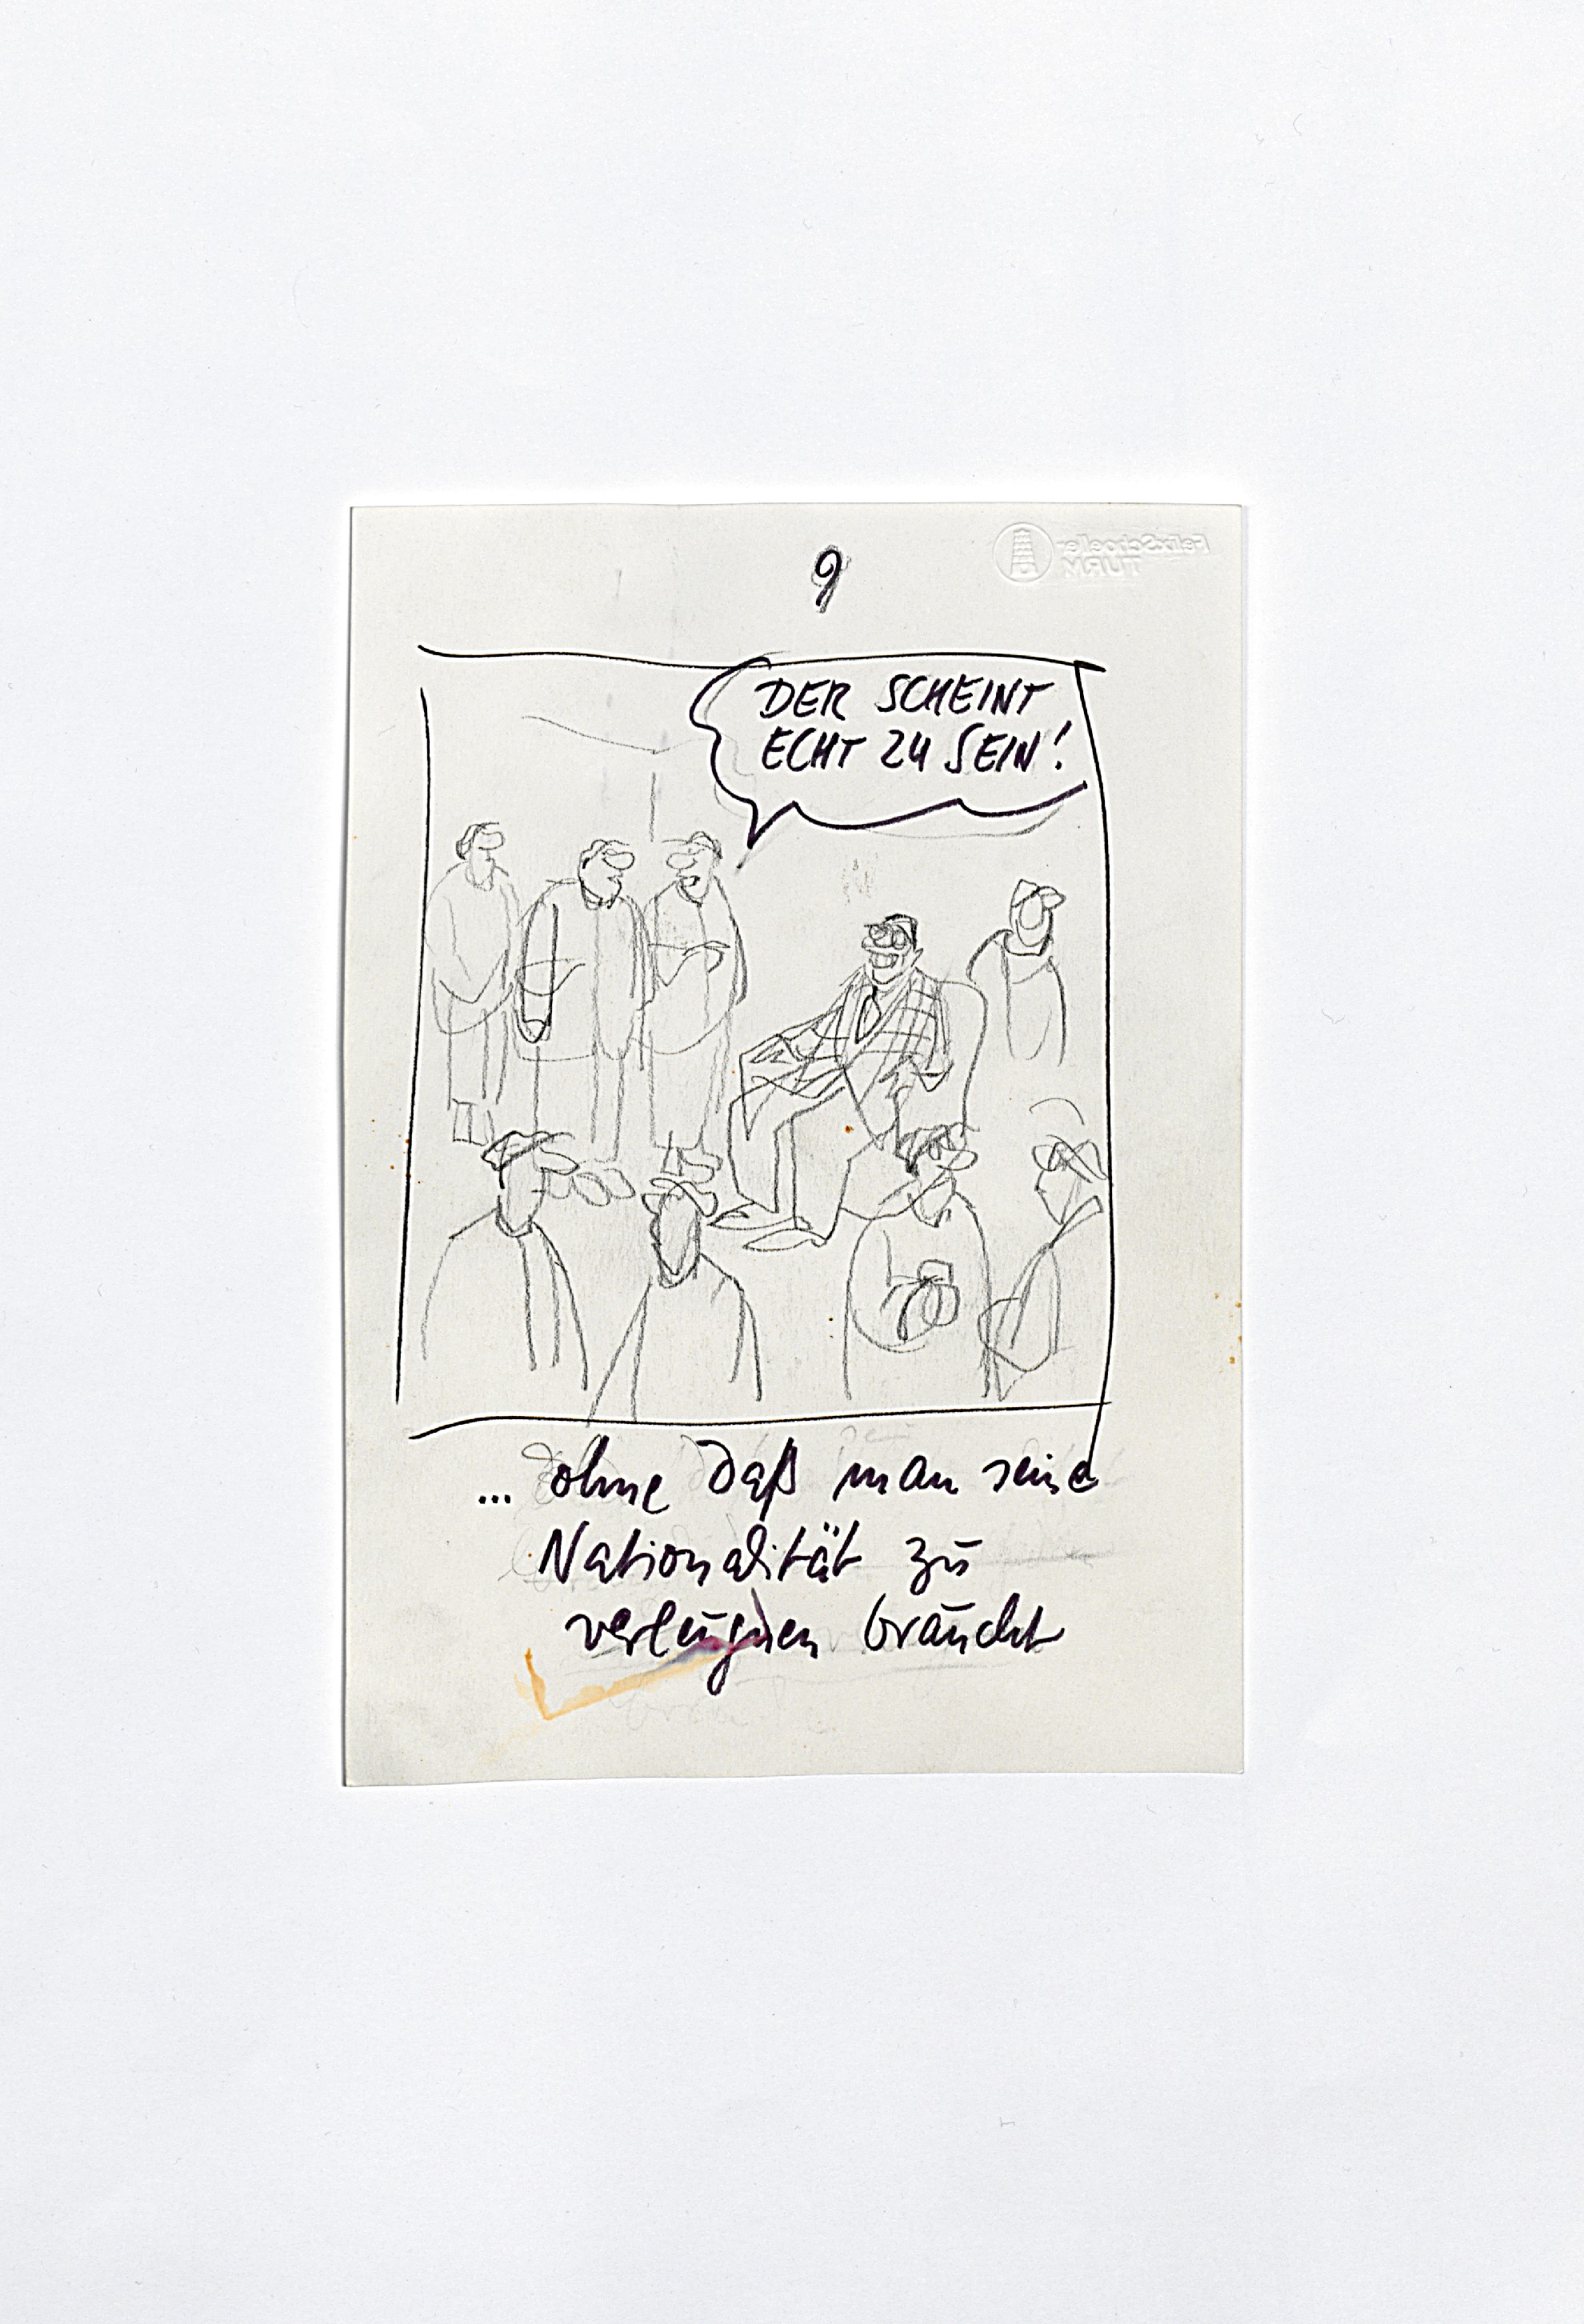 9
DER SCHEINT
ECHT ZU SEIN!
... ohne daß man seine
Nationalität zu
verleugnen braucht
Felix Schoeller
TURM